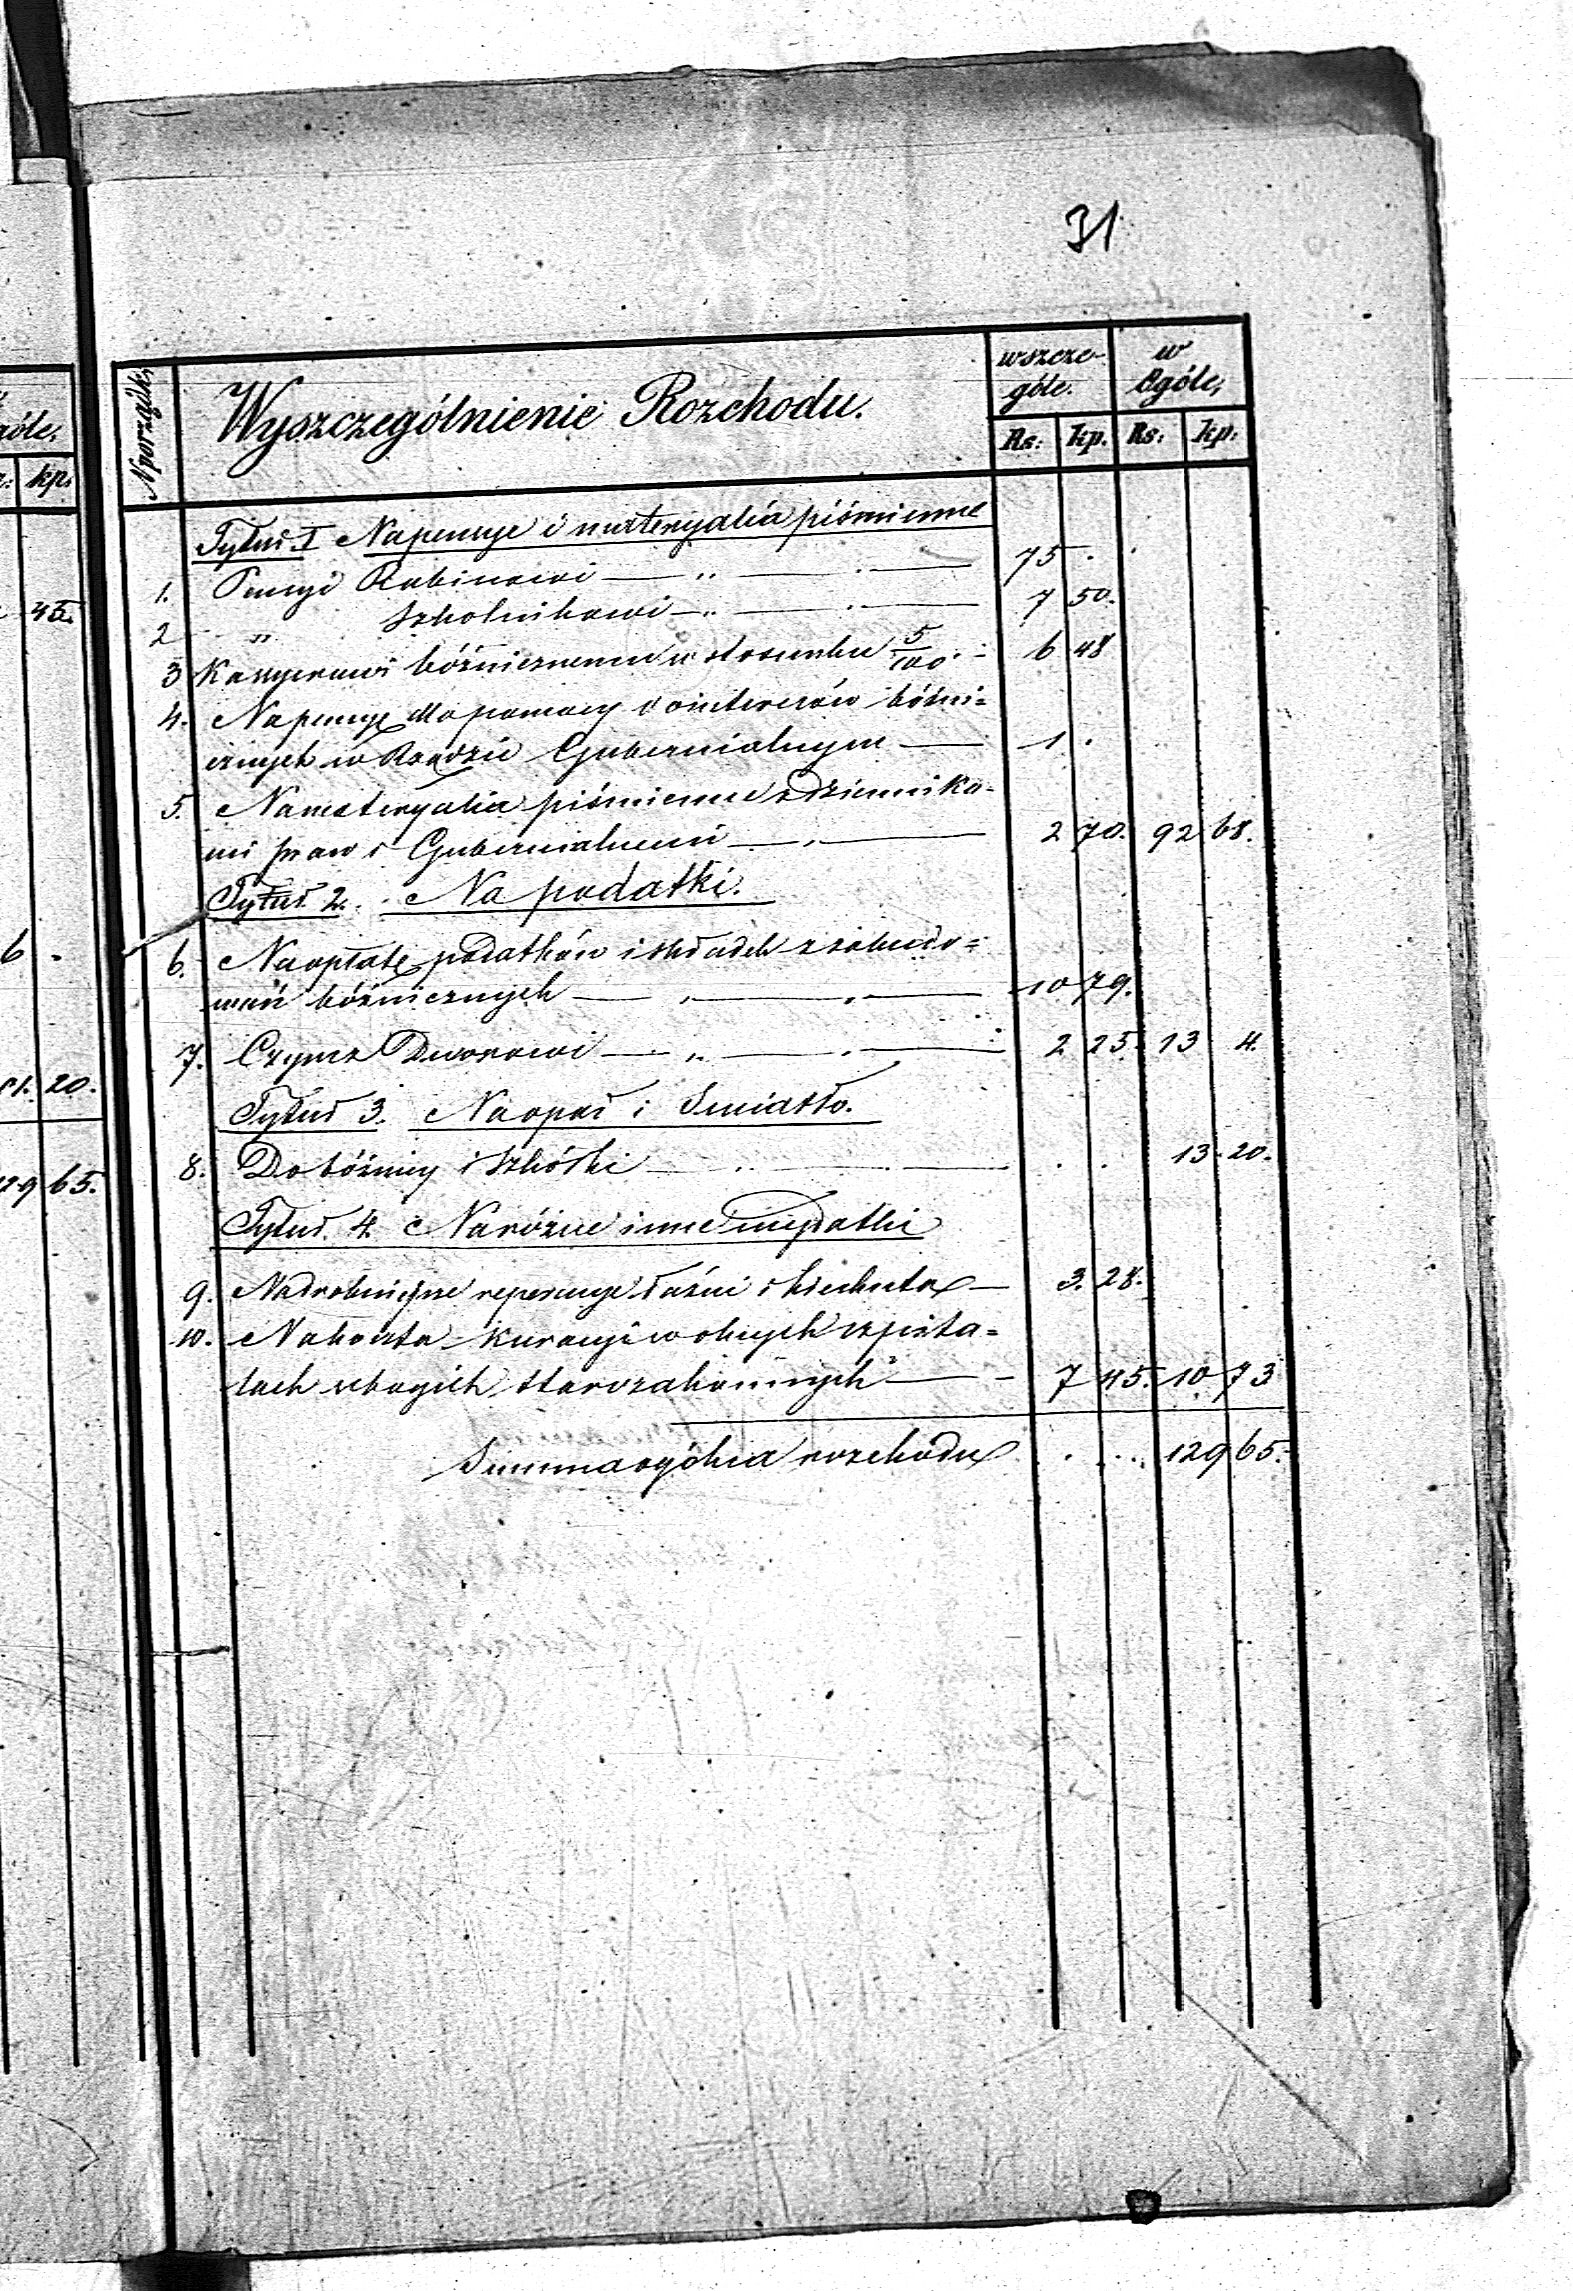 31
N porządk:
Wyszczególnienie Rozchodu.
w szcze-
góle.
w
Ogóle,
Rs: kp. Rs: kp:
góle,
kp.
Tytuł I Na pensye i materyalia piśmienne
1. Pensyi Rabinowi — „ — . — 75 .
2 „ Szkolnikowi — „ — . — 7 50.
3 Kassyerowi bóżnicznemu w stosunku 5/100 . - 6 48
4. Na pensyę dla pomocy do interesów bóżni=
cznych w Rządzie Gubernialnym — 1 .
5. Na materyalia piśmienne z dziennika=
mi praw i Gubernialnemi — . — 2 70. 92 68.
Tytuł 2. Na podatki.
6. Na opłatę podatków i składek z zabudo=
wań bóżnicznych — . — . — 10 79.
7. Czynsz Dworowi — „ — . — 2 25. 13 4.
Tytuł 3. Na opał i Swiatło.
8. Do bóżnicy i szkółki — . — . — . . 13 20.
Tytuł. 4. Na różne inne wydatki
9. Na drobniejsze reperacye łaźni i kirchuta — 3. 28.
10. Na koszta kuracyi w obcych szpita=
lach ubogich starozakonnych — 7 45. 10 73
Summa ogólna rozchodu . ... 129 65.
45.
6 .
81. 20.
129 65.